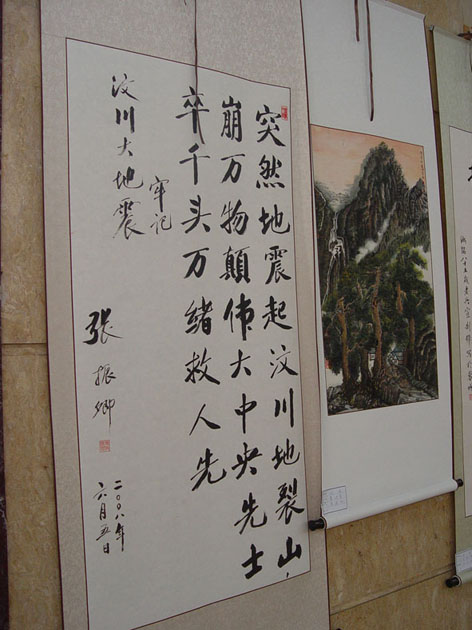 突然地震起汶川地裂山
崩万物顛伟大中央先士
卒千头万绪救人先
牢记
汶川大地震
張振卿
二〇〇八年
六月五日